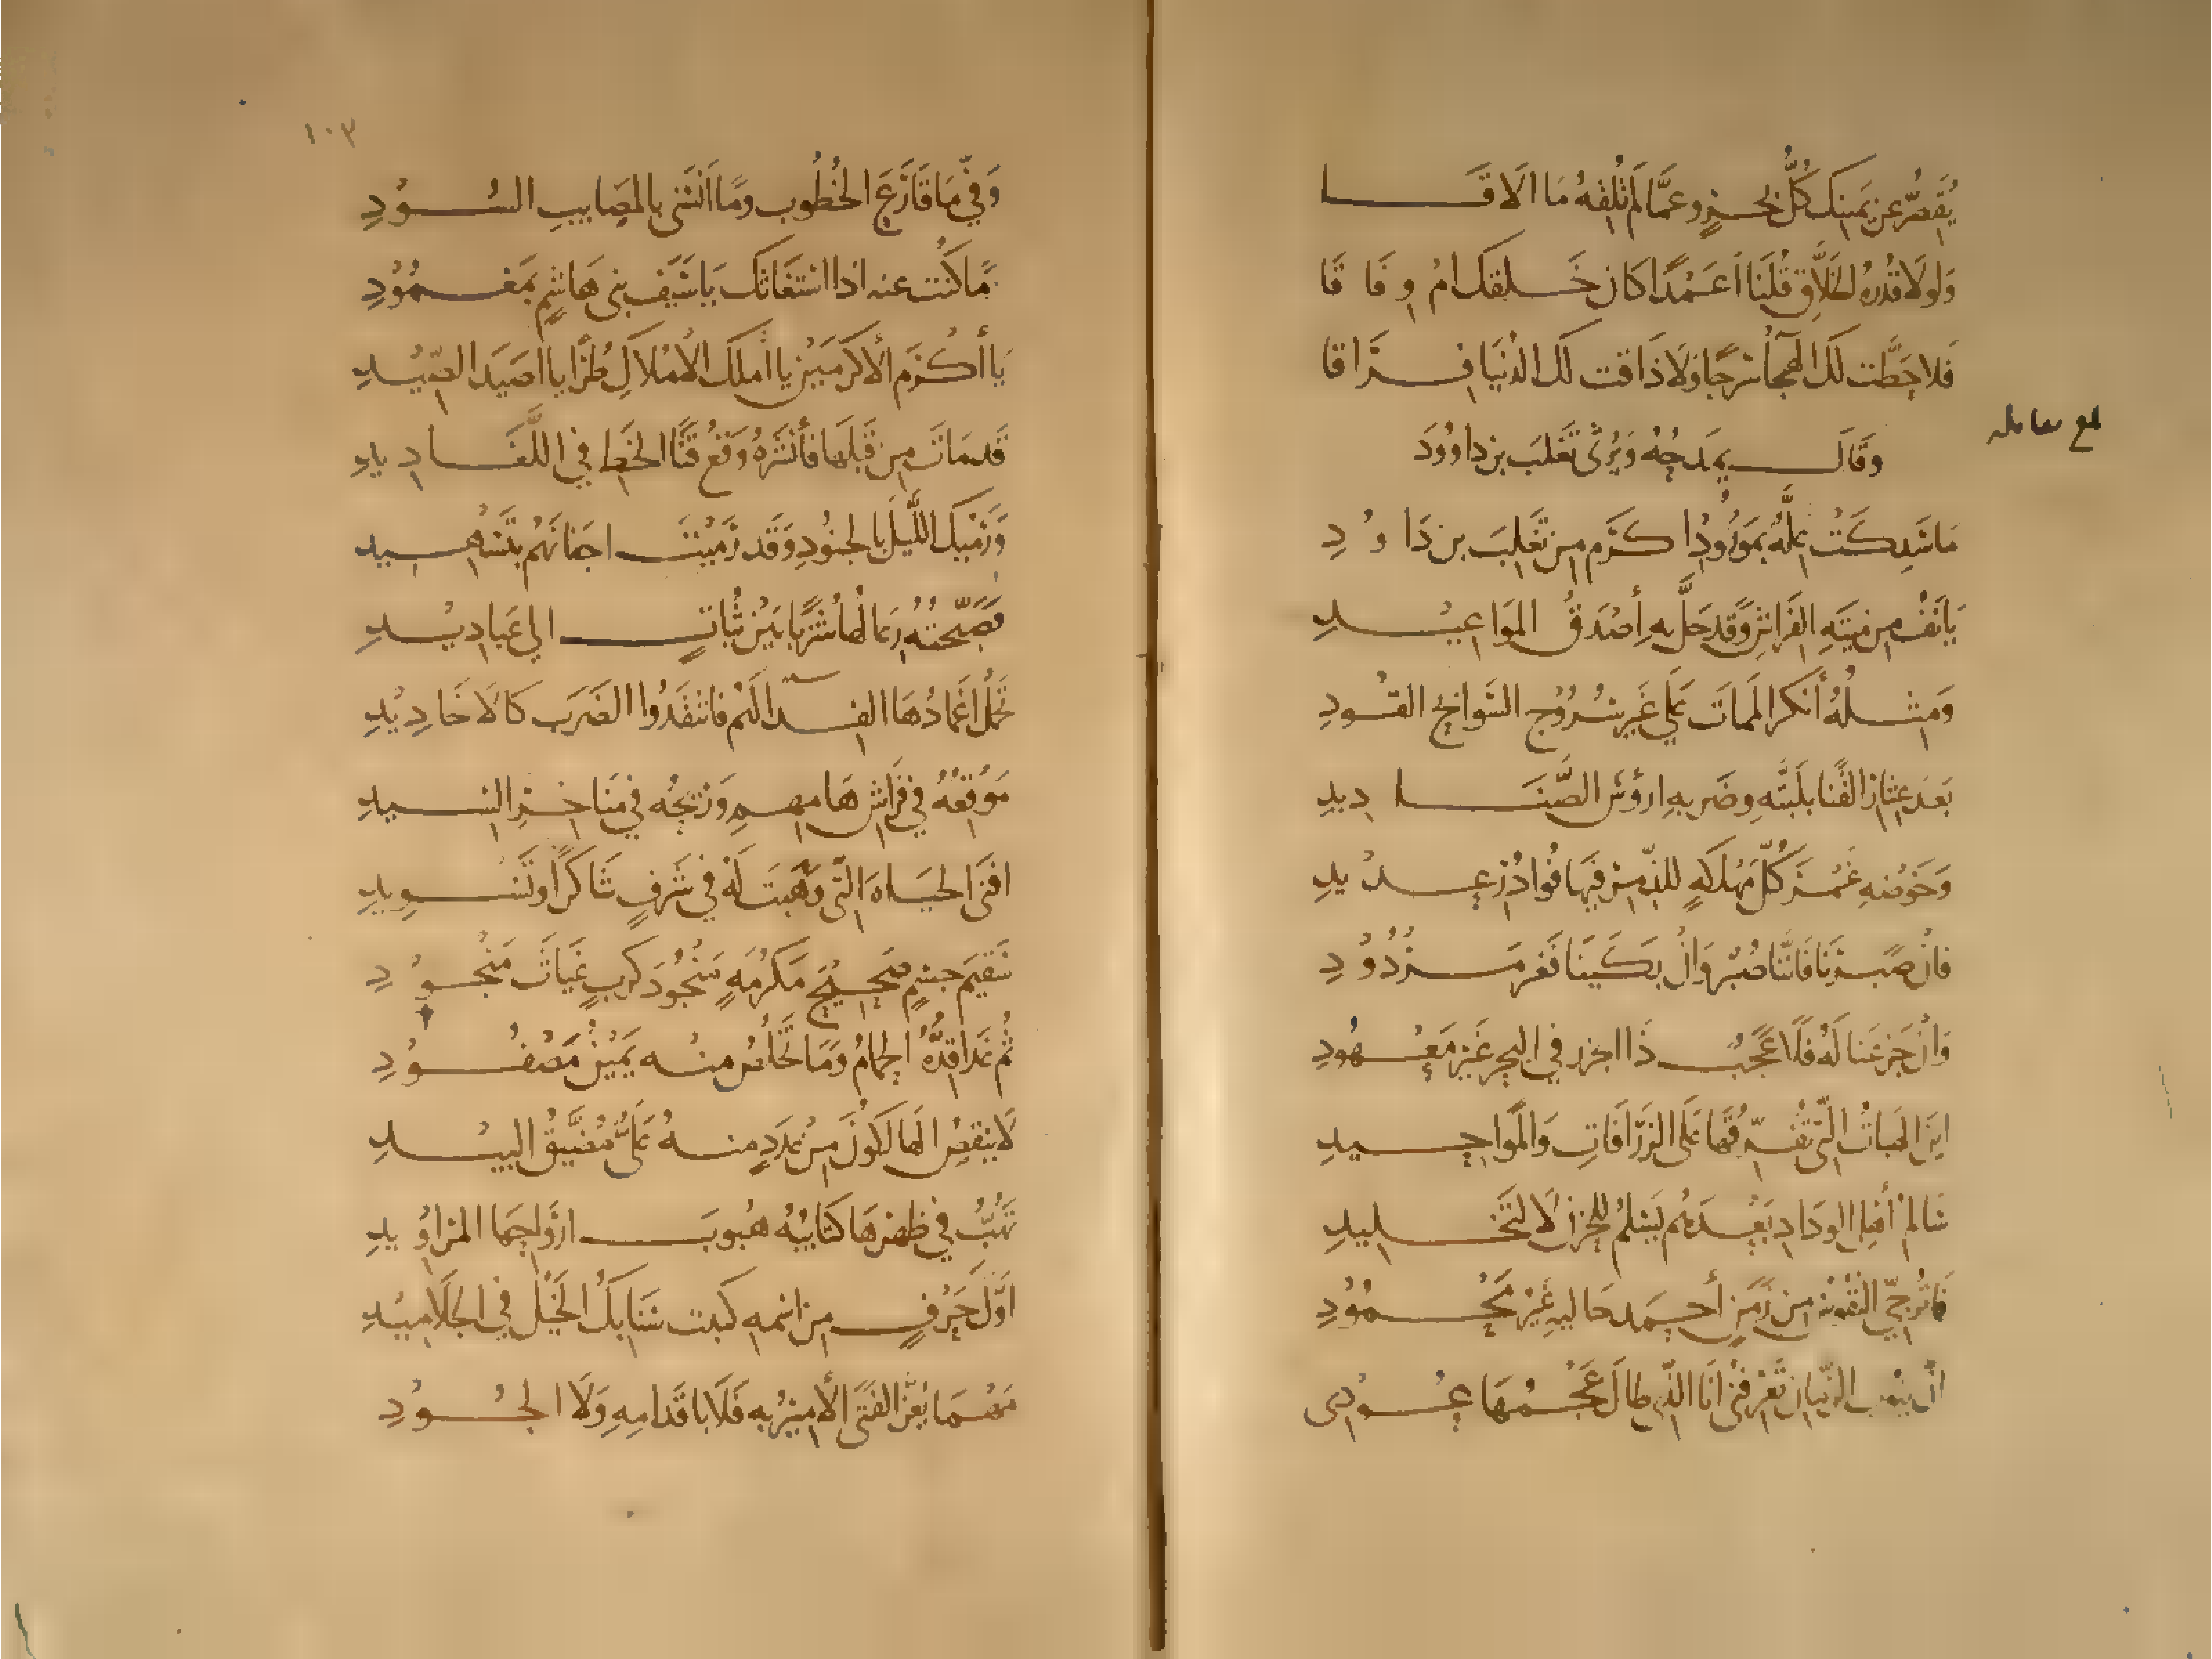 يُقَصِّرُ عن يَمينِكَ كُلُّ بحرٍ وعَمَّا لَم تُلِقْهُ مَا الَاقَا
وَلولَا قُدْرَهُ الخَلَّاقِ قُلنَا أعَمْدًا كان خَلقك ام وِفَاقَا
فَلا حَطَّت لَكَ الهيجَآ سَرجًا وَلَا ذَاقت لك الدُنيَا فِرَاقا
وقَالَ يمدَحُهُ وَيَرثى تَغلبَ بن داوُودَ
مَا سَدِكَتْ عِلَّهٌ بمَورُودِ اكرَم من تَغلِبَ بن دَاوُدِ
يَانَفُ من مِيتَهِ الفرَاشِ وَقَد حَلَّ بهِ أصْدَقُ المَوَاعِيدِ
وَمثلُهُ أنكرَ المماتَ عَلَى غَيرِ سُرُوج السَوابحِ القُودِ
بَعدَ عِثارِ القَنا بلَبَّتهِ وضَربهِ ارؤسَ الصَّنَادِيدِ
وَخَوضِهِ غَمْرَ كُلّ مَهلَكهٍ للذِمْرِ فيهَا فُوادُ رِعدِيدِ
فانْ صَبَرْنَا فَانَّنَا صُبُر وَانْ بَكَينَا فَغيرَ مَردُودِ
وَانْ جَزعْنَا لَهُ فَلَا عَجَبٌ ذَا الجزر في البحرِ غَيرُ مَعهُودِ
اينَ الهبَاتُ الّتى تُفَرّقُهَا عَلَى الزَرَافَاتِ وَالمَوَاحِيدِ
سَالمُ أهلِ الودَادِ بَعْدَهُم يَسْلمُ للحُزنِ لَا لتَخلِيدِ
فما تُرجّى النُفُوسُ من زَمَنٍ أحمَد حَاليهِ غَيرُ مَحمُودِ
انَّ نيُوبَ الزَّمان تَعْرِفُنى أنَا الذى طالَ عَجْمُهَا عُودى
١٠٣
وَفيَّ مَا قَارَعَ الخُطُوب ومَا اَنَسَنى بالمَصايبِ السُودِ
مَا كُنت عنه اذا استَغَاثكَ يَا سَيفَ بنى هَاشِمٍ بمَغمُودِ
يَا أكْرَم الأكرَمينَ يا املك الأمْلَاكِ طُرًّا يا اصَيدَ الصِّيدِ
قَد مَاتَ من قَبلهَا فأنْشَرَهُ وَقعُ قَنَا الخَطِ في اللَّغَادِيدِ
وَرَميكَ اللّيلَ بالجنُودِ وَقَد رَميتَ اجفَانَهُم بتَسهِيدِ
فصَبَّحتهُ رعَالهُا شُزَّبًا بَينَ ثُبَاتٍ الي عَبَادِيدِ
تَحمِلُ اغمَادُهَا الفدا لَهُم فانتَقَدُوا الضَربَ كالَاخَادِيدِ
مَوقعُهُ في فرَاشِ هَامهمِ وَريحُه في مَنَاخرِ السيدِ
افنى الحيَاهَ الَتى وَهَبتَ لَهُ في شَرفٍ شَاكرًا وتَسويدِ
سَقيمَ جسمٍ صَحيحَ مَكرُمَهٍ مَنجُودَ كَربٍ غِيَاثَ مَنْجُودِ
ثُم غَدَا قدُّهُ الحِمَامُ ومَا تَخلُصُ منهُ يَمينُ مَصفُودِ
لَا يَنقصُ الهَالكونَ من عَددٍ منهُ عَلىٌّ مُضَيّقُ البيدِ
تَهُبُّ في ظهرهَا كتَايبُهُ هُبُوبَ ارْوَاحِهَا المرَاوِيدِ
اوَّلَ حَرفٍ من اسْمهِ كَتبت سَنَابكُ الخَيْلِ في الجلَامِيدِ
مَهمَا يُعَزَّ الفَتَى الأمِيرُ به فَلَا باقدَامِهِ وَلَا الجُودِ